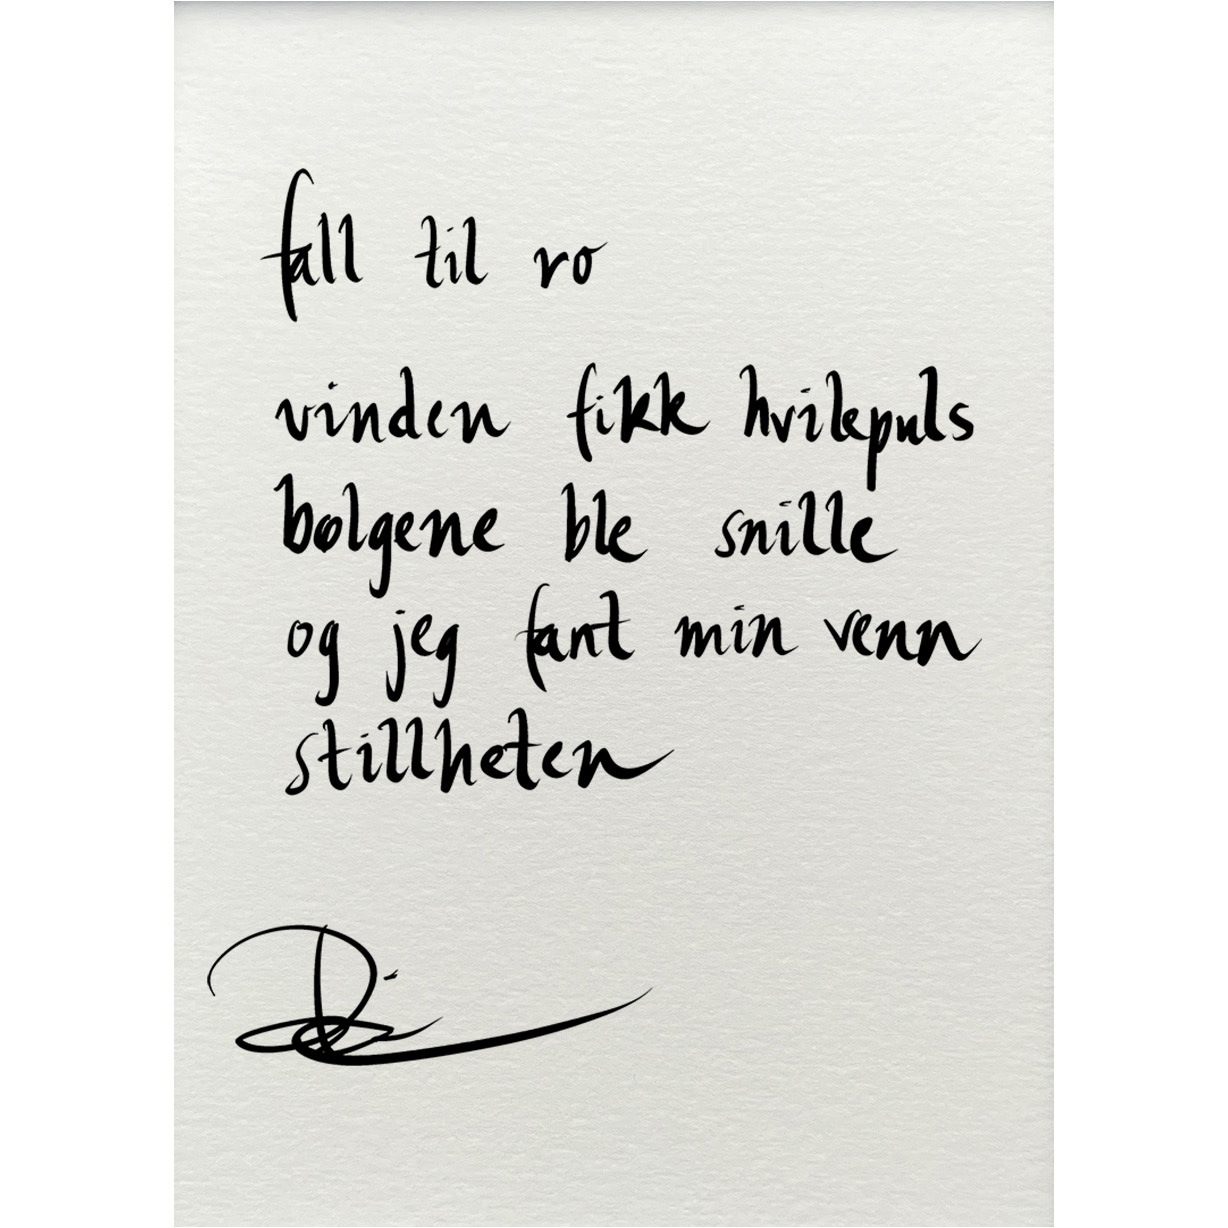 fall til ro
vinden fikk hvilepuls
bølgene ble snille
og jeg fant min venn
stillheten